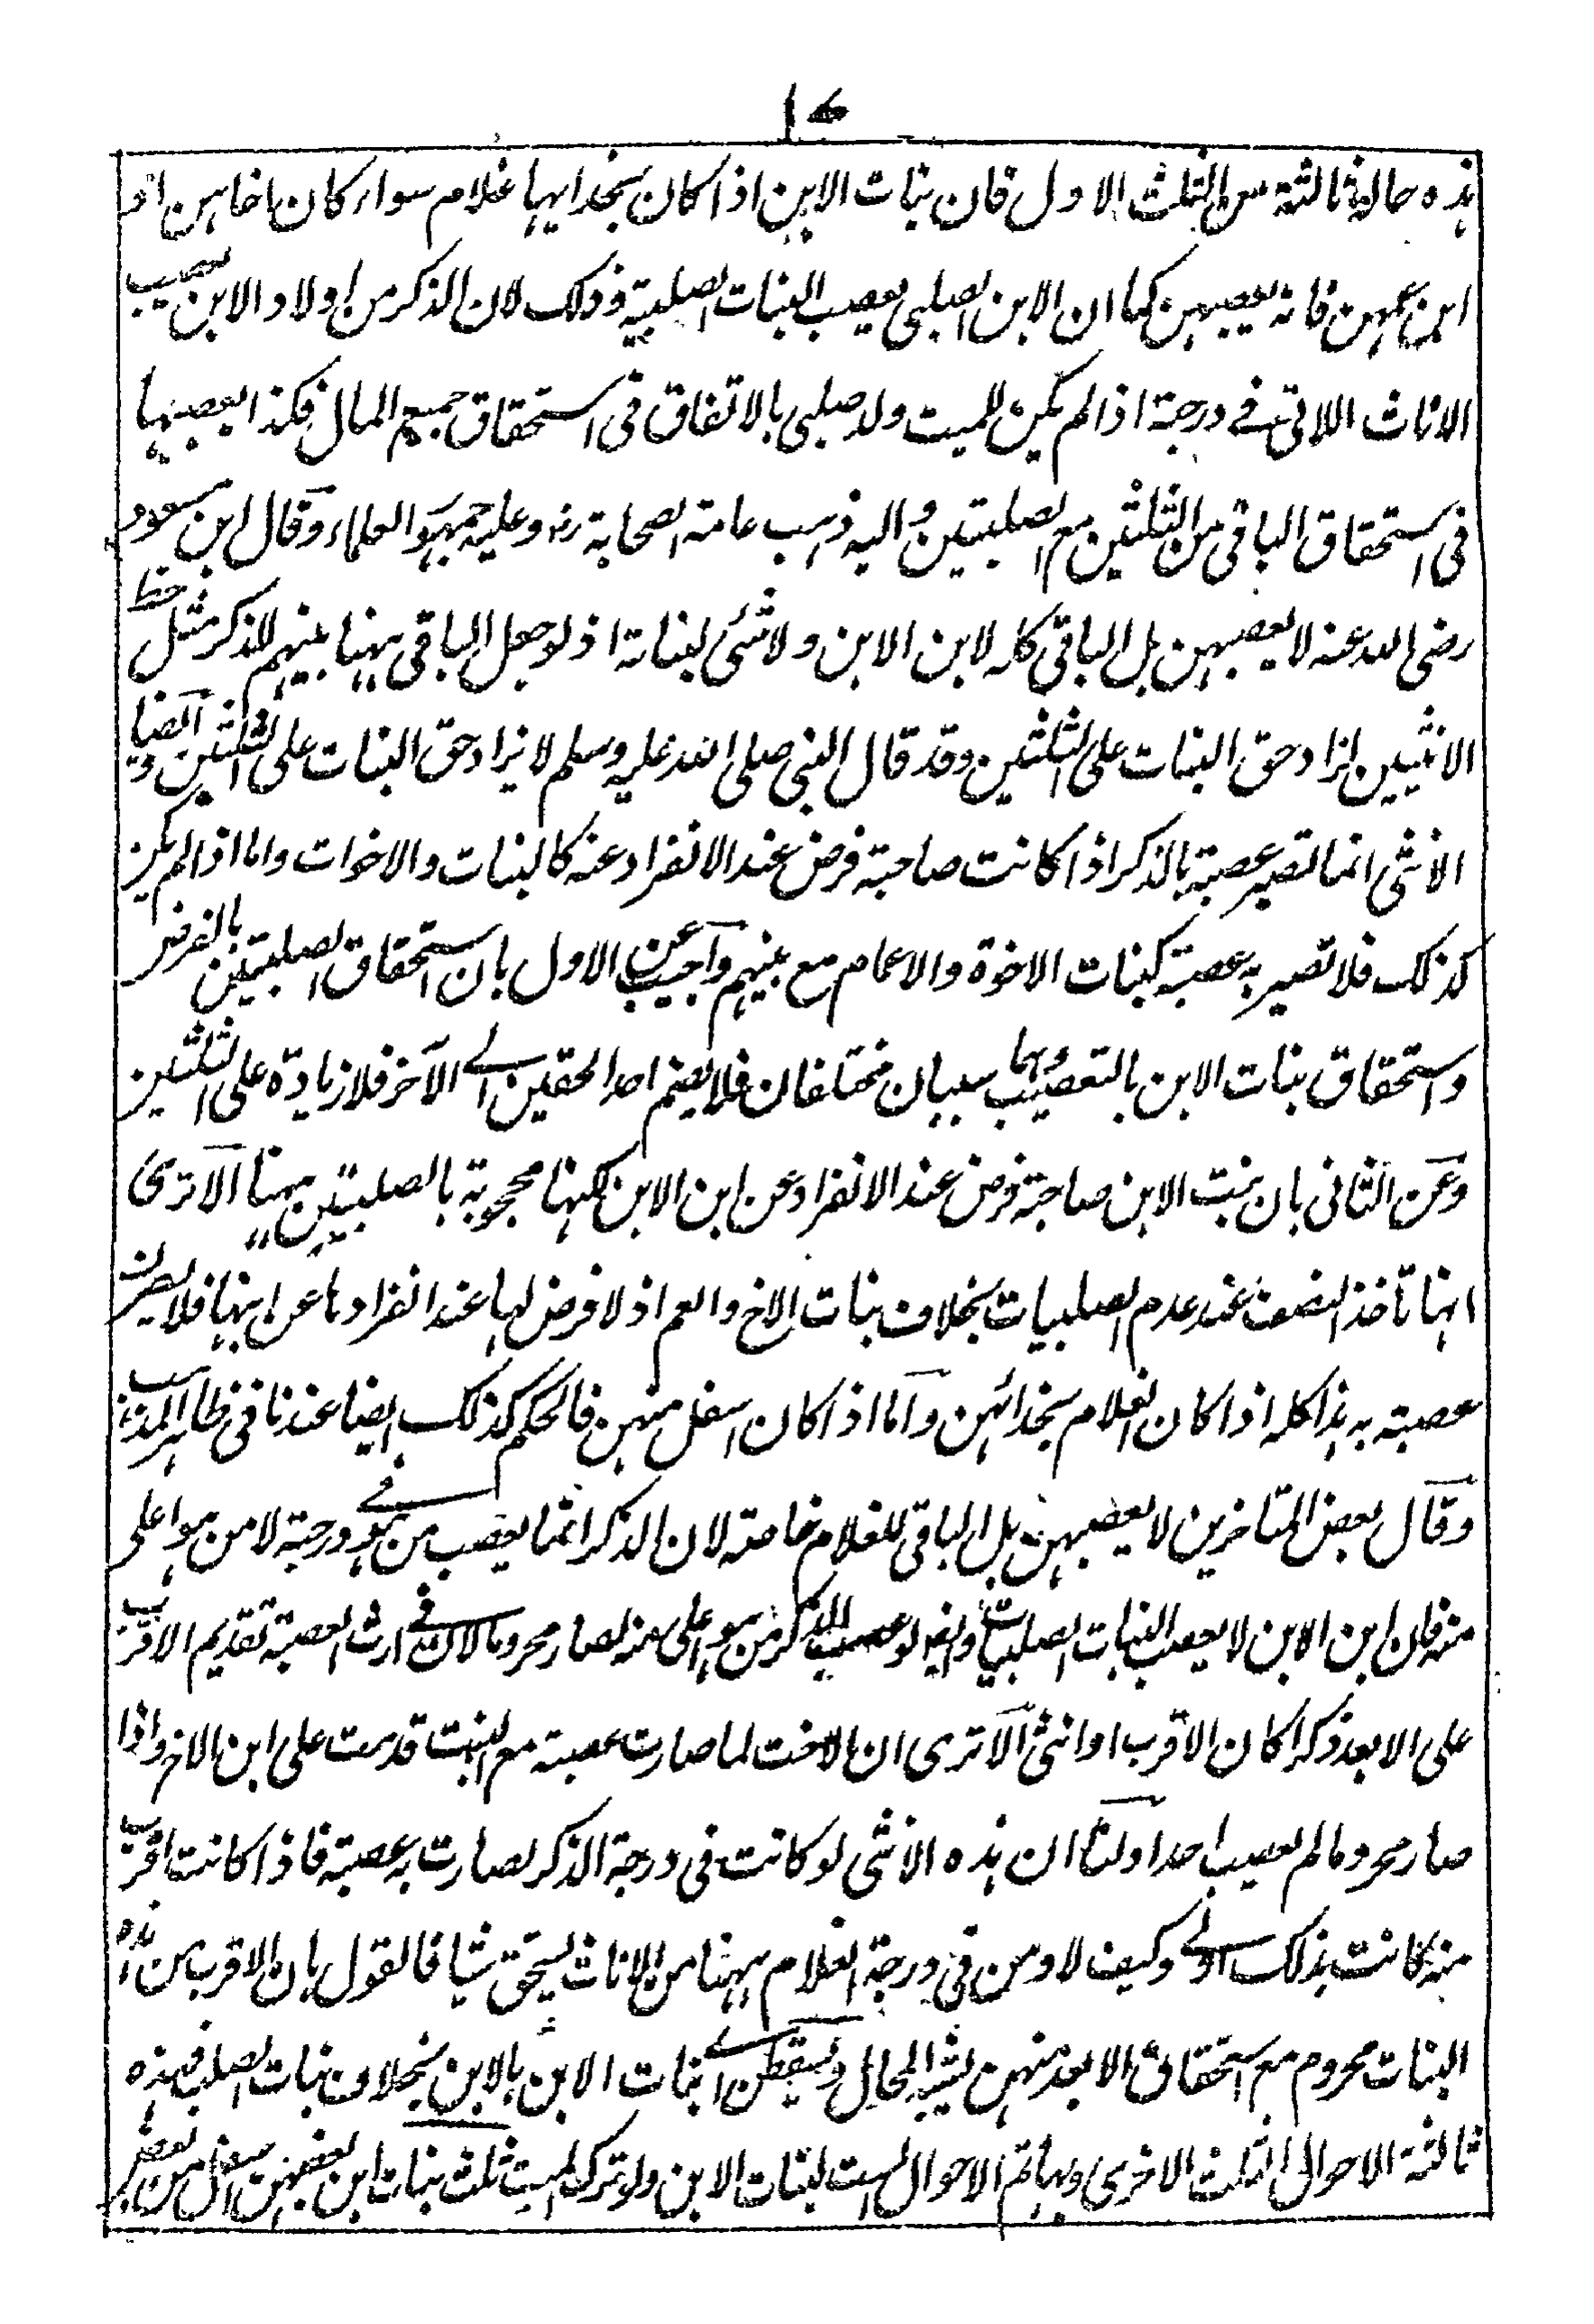 ١٧
هذه حالة ثالثة من الثلث الاول فان بنات الابن اذا كان بحذائها غلام سواء كان اخاهن او
ابن عمهن فانه يعصبهن كما ان الابن الصلبى يعصب البنات الصلبية وذلك لان الذكر من اولاد الابن يعصب
الاناث اللاتى فے درجة اذا لم يكن للميت ولد صلبى بالاتفاق فى استحقاق جميع المال فكذا يعصبها
فى استحقاق الباقى من الثلثين مع الصلبيتين واليه ذهب عامة الصحابة رضہ وعليه جمهور العلماء وقال ابن مسعود
رضى الله عنه لا يعصبهن بل الباقى كله لابن الابن ولا شئ لبناته اذ لو جعل الباقى ههنا بينهم للذكر مثل حظ
الانثيين لزاد حق البنات على الثلثين وقد قال النبى صلى الله عليه وسلم لا يزاد حق البنات على الثلثين وايضا
الانثى انما تصير عصبة بالذكر اذا كانت صاحبة فرض عند الانفراد عنه كالبنات والاخوات واما اذا لم يكن
كذلك فلا تصير به عصبة كبنات الاخوة والاعمام مع بنيهم واجيب عن الاول بان استحقاق الصلبيتين بالفرض
واستحقاق بنات الابن بالتعصيب وهما سببان مختلفان فلا يضم احد الحقين الے الآخر فلا زيادة على الثلثين
وعن الثانى بان بنت الابن صاحبة فرض عند الانفراد عن ابن الابن لكنها محجوبة بالصلبيتين ههنا الا ترى
انها تأخذ النصف عند عدم الصلبيات بخلاف بنات الاخ والعم اذ لا فرض لها عند انفرادها عن ابنها فلا يصرن
عصبة به هذا كله اذا كان الغلام بحذائهن واما اذا كان اسفل منهن فالحكم كذلك ايضا عندنا فى ظاهر المذهب
وقال بعض المتاخرين لا يعصبهن بل الباقى للغلام خاصة لان الذكر انما يعصب من هو فے درجة لا من هو اعلى
منه فان ابن الابن لا يعصب البنات الصلبيات وايضا لو عصب الذكر من هو اعلى منه لصار محروما لان فے ارث العصبة تقديم الاقرب
على الابعد ذكرا كان الاقرب او انثى الا ترى ان الاخت لما صارت عصبة مع البنت قدمت على ابن الاخ واذا
صار محروما لم يعصب احدا ولنا ان هذه الانثى لو كانت فى درجة الذكر لصارت به عصبة فاذا كانت اقرب
منه كانت بذلك اولے وكيف لا ومن فى درجة الغلام ههنا من الاناث يستحق شيئا فالقول بان الاقرب من هذه
البنات محروم مع استحقاق الابعد منهن يشبه المحال ويسقطن اے بنات الابن بالابن بخلاف بنات الصلب فهذه
ثالثة الاحوال الثلث الاخرى وبها تتم الاحوال الست لبنات الابن ولو ترك الميت ثلث بنات ابن بعضهن اسفل من بعض